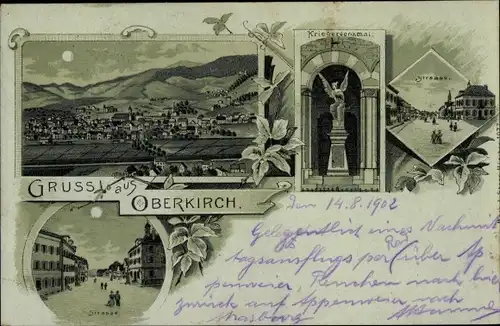 Kriegerdenkmal.
Strasse.
GRUSS aus
OBERKIRCH.
Strasse
den 14.8.1902
Gelegentlich eines Nachmit
tagsausflugs per über Ap-
penweier, Renchen nach hier
zurück auf Appenweier nach
Strasbourg